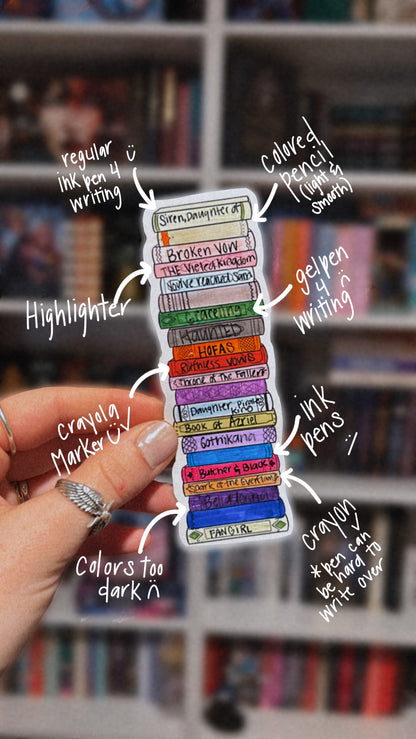 regular
ink pen 4
writing
colored
pencil
(light &
smooth)
Highlighter
gel pen
4
writing
crayola
Marker
ink
pens
Colors too
dark
crayon
*pen can
be hard to
write over
Siren, Daughter of
Broken Vow
HAUNTED
HOFAS
Ruthless Vows
Throne of The Fallen
Daughter Pirate
King
Book of Azrial
Gothikana
Butcher & Black
Spark of the Everflame
FANGIRL